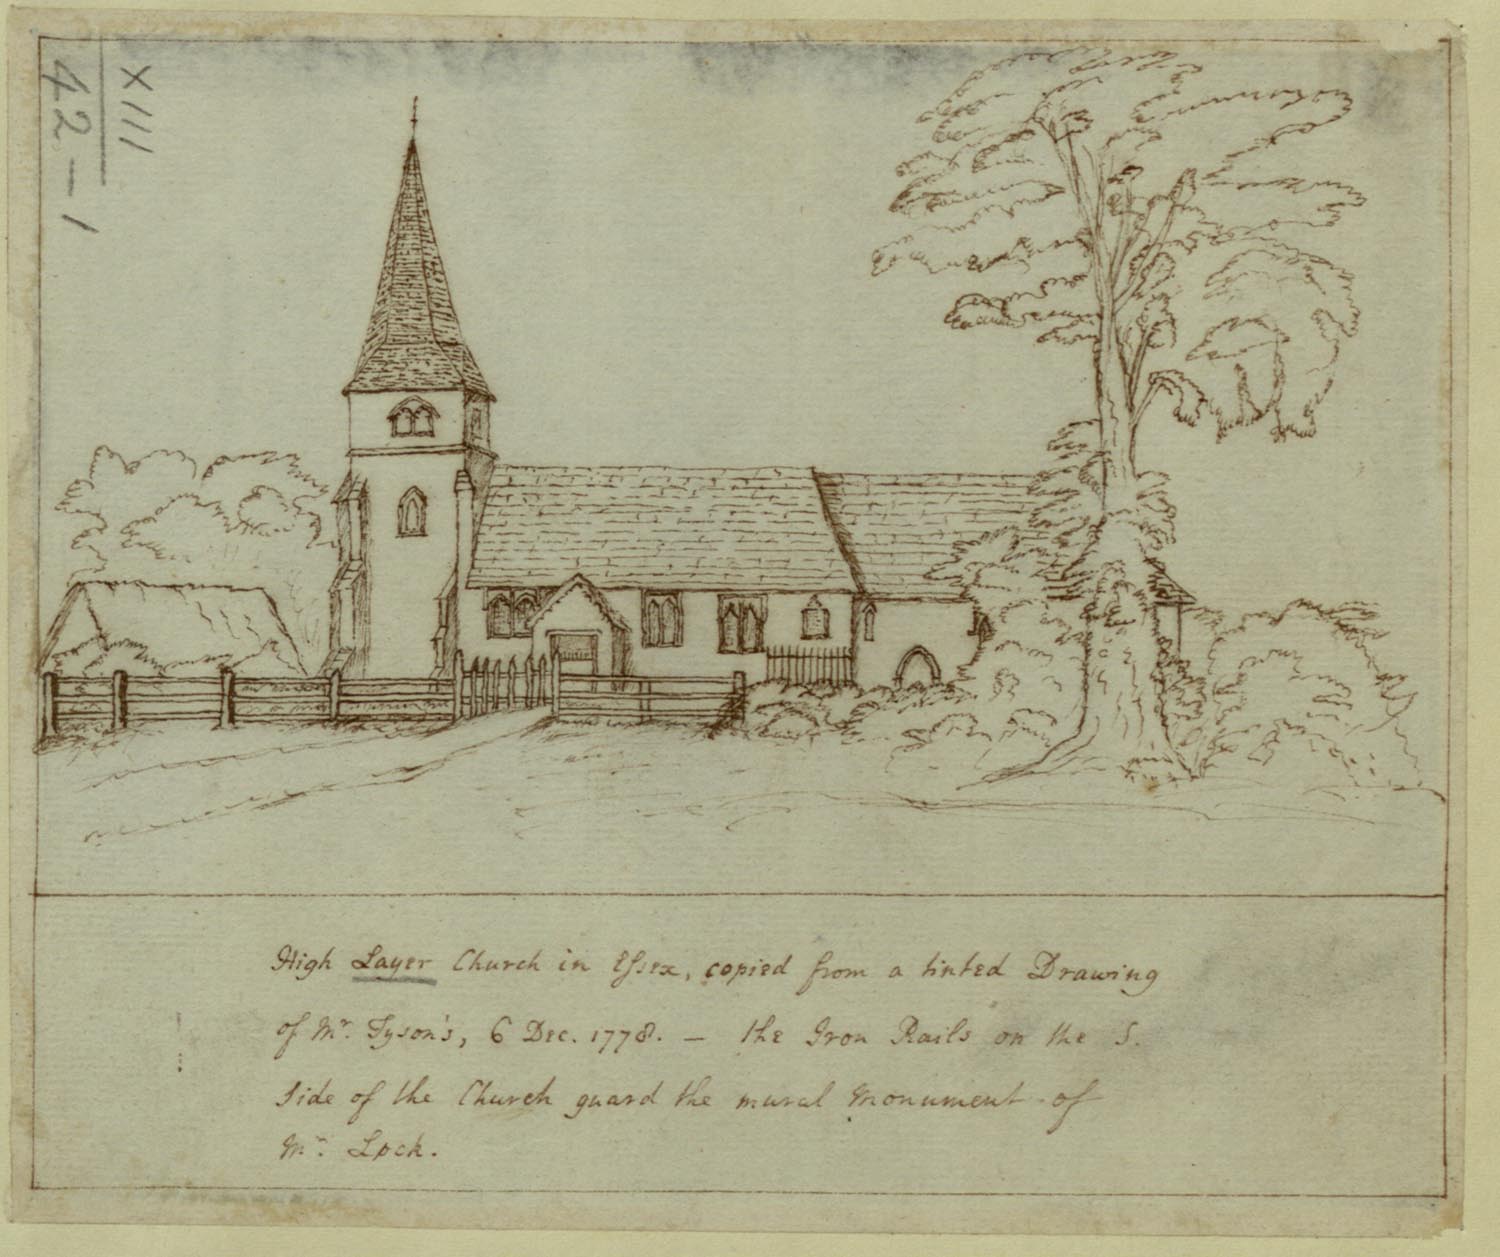 XIII
42-1
High Layer Church in Essex, copied from a tinted Drawing
of Mr. Tyson's, 6 Dec. 1778. — the Iron Rails on the S.
Side of the Church guard the mural Monument of
Mr. Lock.